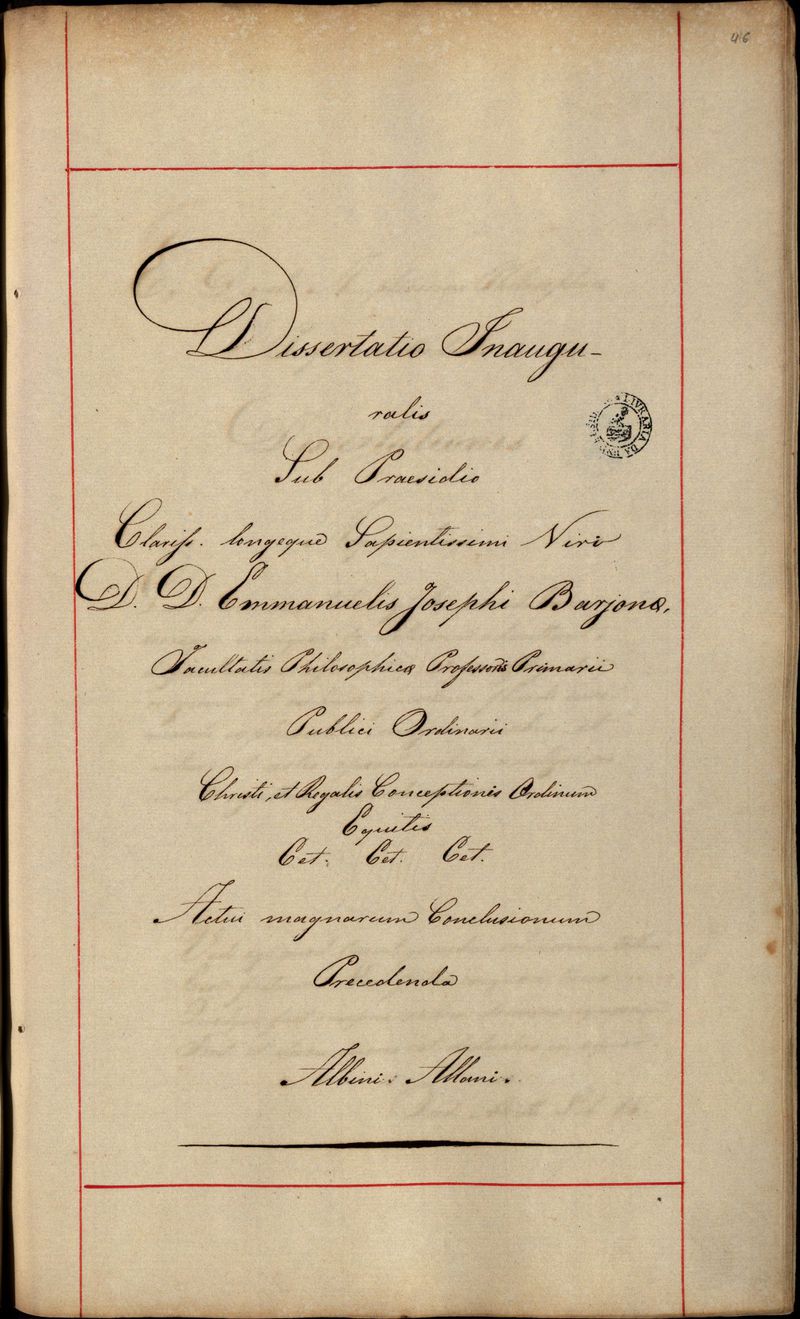 46
Dissertatio Inaugu-
ralis
LIVRARIA DA
Sub Praesidio
Clariss. longeque Sapientissimi Viri
D. D. Emmanuelis Josephi Barjonæ,
Facultatis Philosophicæ Professoris Primarii
Publici Ordinarii
Christi, et Regalis Conceptionis Ordinum
Equitis
Cet. Cet. Cet.
Actui magnarum Conclusionum
Precedenda
Albini Allani.